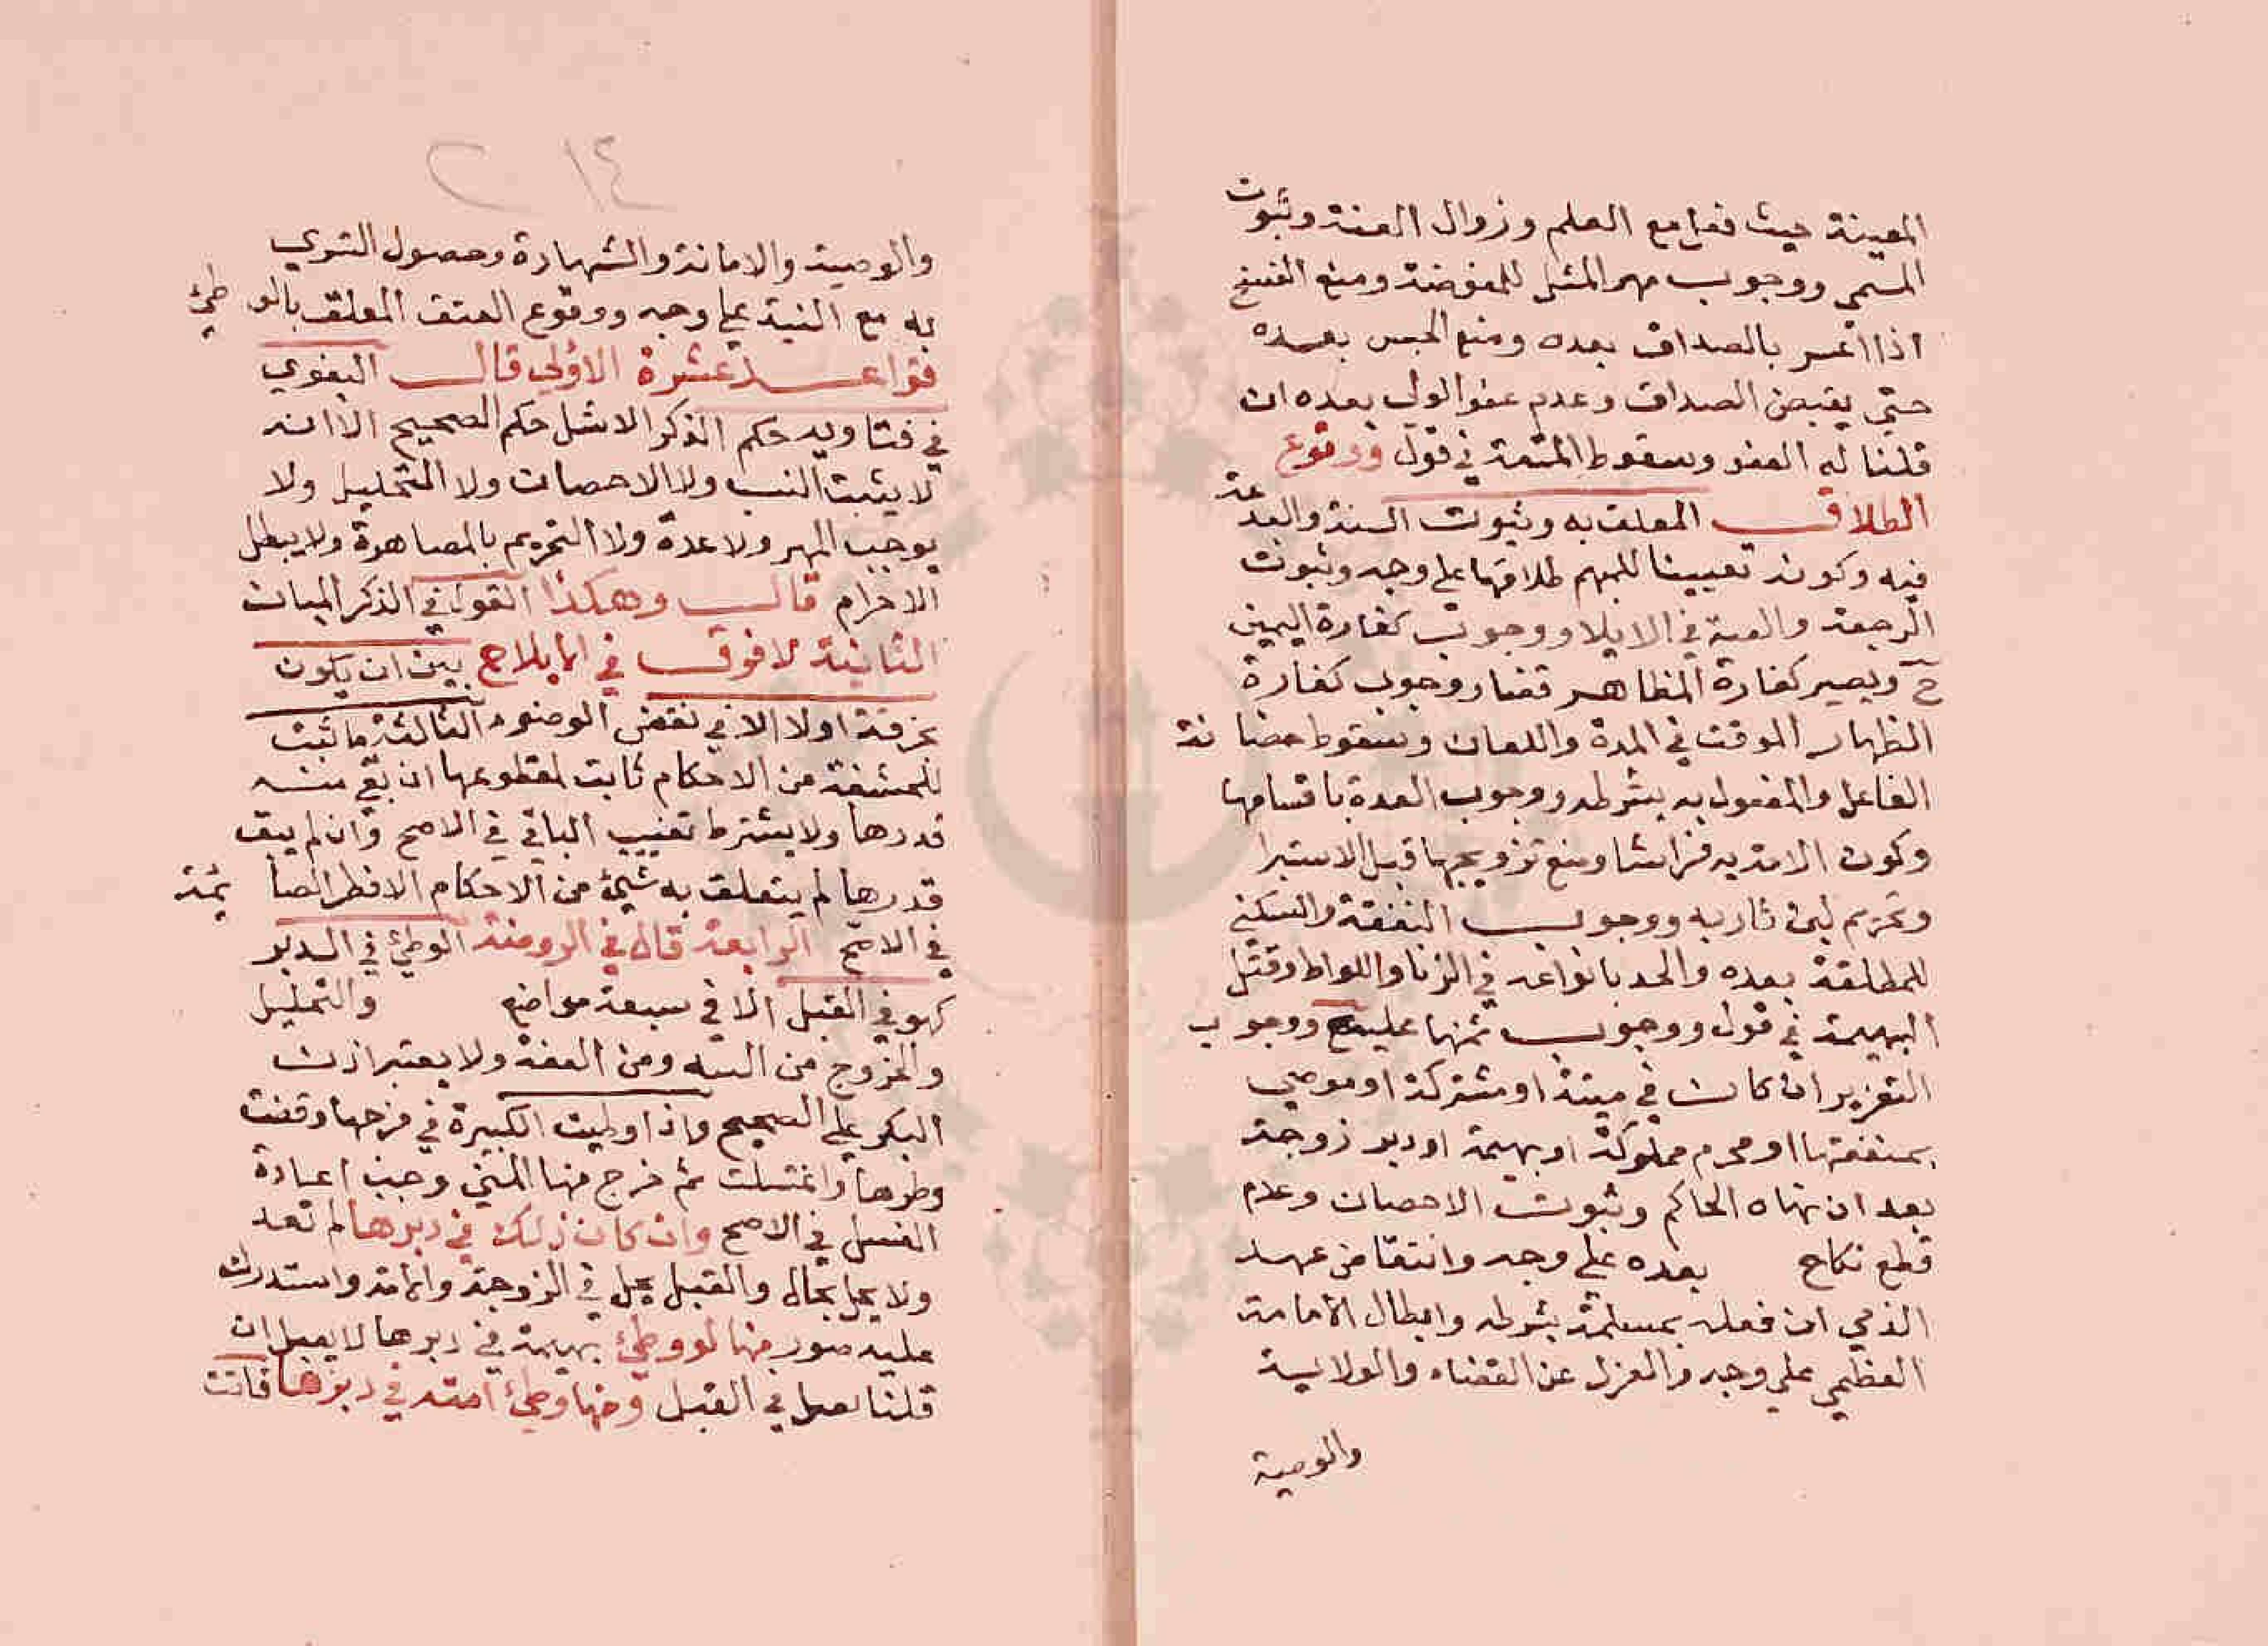 المعينة حيث فعل مع العلم وزوال العنة وثبوت
المسمي ووجوب مهر المثل للمفوضة ومنع الفسخ
اذا اعسر بالصداق بعده ومنع الحبس بعده
حتي يقبض الصداق وعدم عفو الولي بعده ان
قلنا له العفو وسقوط المتعة في قول ووقوع
الطلاق المعلق به وثبوت السنة والبدعة
فيه وكونه تعيينا للمبهم طلاقها علي وجه وثبوت
الرجعة والفية في الايلا ووجوب كفارة اليمين
ح ويصير كفارة المظاهر قضا ووجوب كفارة
الظهار الموقت في المدة واللعان وسقوط حضانة
الفاعل والمفعول به بشرطه ووجوب العدة باقسامها
وكون الامة به فراشا ومنع تزويجها قبل الاستبرا
وتحريم لبن ثاربه ووجوب النفقة والسكني
للمطلقة بعده والحد بانواعه في الزنا واللواط وقتل
البهيمة في قول ووجوب ثمنها عليه ح ووجوب
التعزير ان كانت في ميتة او مشتركة او موصي
بمنفعتها او محرم مملوكة او بهيمة او دبر زوجة
بعد ان نهاه الحاكم وثبوت الاحصان وعدم
قطع نكاح بعده علي وجه وانتقاض عهد
الذمي ان فعله بمسلمة بشرطه وابطال الامامة
العظمي علي وجه والعزل عن القضاء والولاية
والوصية
٢١٤
والوصية والامانة والشهادة وحصول التسري
به مع النية علي وجه ووقوع العتق المعلق بالوطئ
فقواعد عشرة الاولي قال البغوي
في فتاويه حكم الذكر الاشل حكم الصحيح الا انه
لا يثبت النسب ولا الاحصان ولا التحليل ولا
يوجب المهر ولا عدة ولا التحريم بالمصاهرة ولا يبطل
الاحرام قال وهكذا القول في الذكر المبان
الثانية لا فرق في الايلاج بين ان يكون
بخرقة اولا الا في نقض الوضوء الثالثة ما ثبت
للحشفة من الاحكام ثابت لمقطوعها ان بقي منه
قدرها ولا يشترط تغييب الباقي في الاصح وان لم يبق
قدرها لم يتعلق به شيئ من الاحكام الا فطر الصائمة
في الاصح الرابعة قال في الروضة الوطئ في الدبر
كهو في القبل الا في سبعة مواضع والتحليل
والخروج من الفيه ومن العنة ولا يعتبر اذن
البكر علي الصحيح واذا وطيت الكبيرة في فرجها وقضت
وطرها واغتسلت ثم خرج منها المني وجب اعادة
الغسل في الاصح وان كان ذلك في دبرها لم تعد
ولا يحل بحال والقبل يحل في الزوجة والامة واستدرك
عليه صور منها لو وطئ بهيمة في دبرها لا يقتل ان
قلنا يقتل في القبل ومنها وطئ امته في دبرها فاتت